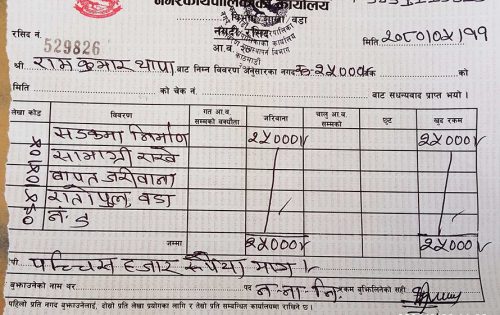 नगरकार्यपालिकाको कार्यालय
नगदी रसिद
रसिद नं. 529826
मिति २०८०/०४/१९
श्री रामकुमार थापा बाट निम्न विवरण अनुसारका नगद रु २५०००/- को
मिति को चेक नं. बाट सधन्यवाद प्राप्त भयो ।
लेखा कोड विवरण गत आ.व. सम्मको बक्यौता जरिवाना चालु आ.व. सम्मको छुट खुद रकम
सडकमा निर्माण २५०००/- २५०००/-
सामाग्री राखे
बापत जरीवाना
रातोपुल वडा
नं.
जम्मा २५०००/- २५०००/-
पच्चिस हजार रूपैया मात्र ।-
बुझाउनेको नाम थर पद ना.ना.नि. रकम बुझिलिनेको सही
पहिलो प्रति नगद बुझाउनेलाई, दोस्रो प्रति लेखा प्रयोगका लागि र तेस्रो प्रति सम्बन्धित कार्यालयमा राखिने छ ।